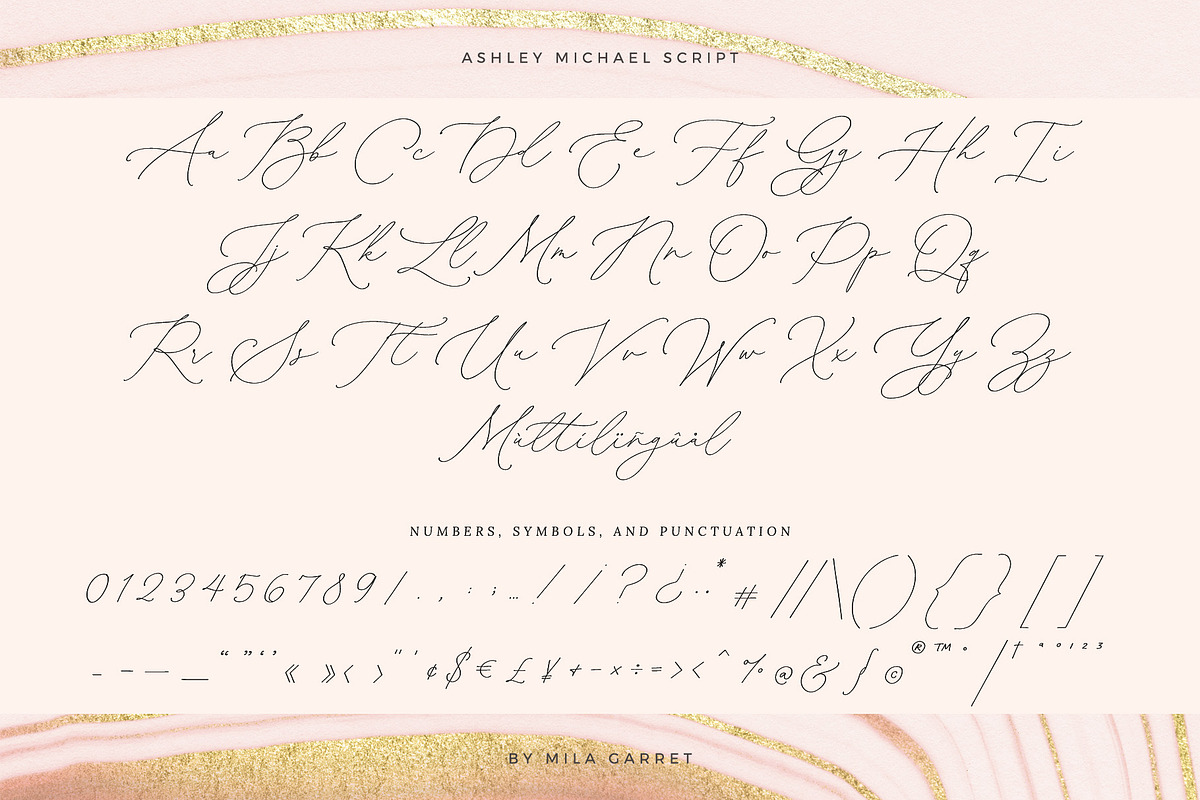 ASHLEY MICHAEL SCRIPT
Aa Bb Cc Dd Ee Ff Gg Hh Ii
Jj Kk Ll Mm Nn Oo Pp Qq
Rr Ss Tt Uu Vv Ww Xx Yy Zz
Mùltilïñgûål
NUMBERS, SYMBOLS, AND PUNCTUATION
0123456789/ . , : ; … ! ¡ ? ¿ · · * # / / \ ( ) { } [ ]
- – — _ “ ” ‘ ’ « » ‹ › " ' ¢ $ € £ ¥ + − × ÷ = > < ^ % @ & ∫ © ® ™ ° / † ª º 1 2 3
BY MILA GARRET